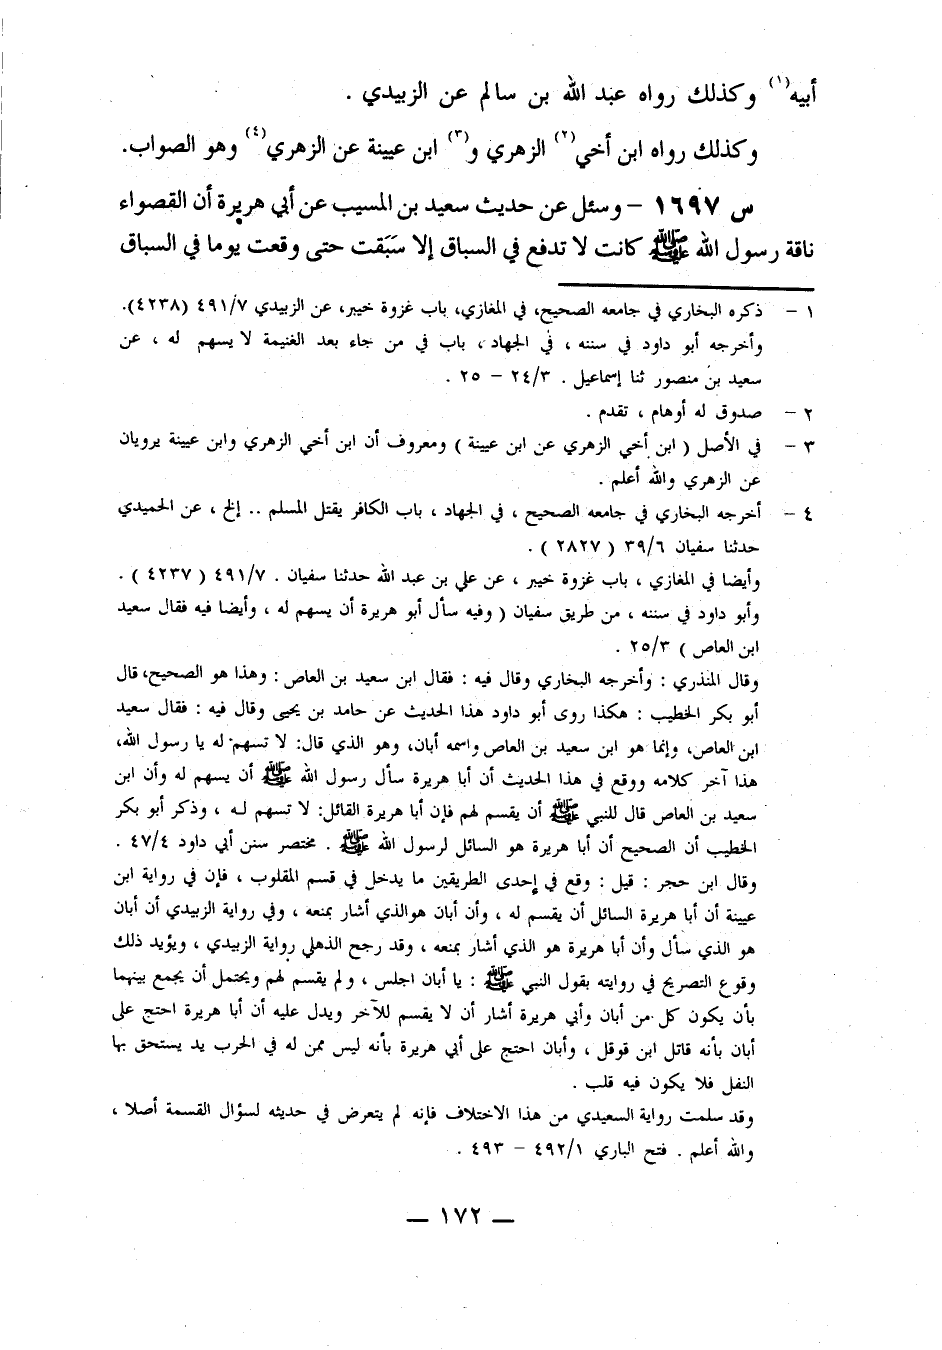 أبيه(١) وكذلك رواه عبد الله بن سالم عن الزبيدي .
وكذلك رواه ابن أخي(٢) الزهري و(٣) ابن عيينة عن الزهري(٤) وهو الصواب.
س ١٦٩٧ – وسئل عن حديث سعيد بن المسيب عن أبي هريرة أن القصواء
ناقة رسول الله ﷺ كانت لا تدفع في السباق إلا سَبَقت حتى وقعت يوما في السباق
١ – ذكره البخاري في جامعه الصحيح، في المغازي، باب غزوة خيبر، عن الزبيدي ٤٩١/٧ (٤٢٣٨).
وأخرجه أبو داود في سننه ، في الجهاد ، باب في من جاء بعد الغنيمة لا يسهم له ، عن
سعيد بن منصور ثنا إسماعيل . ٢٤/٣ – ٢٥ .
٢ – صدوق له أوهام ، تقدم .
٣ – في الأصل ( ابن أخي الزهري عن ابن عيينة ) ومعروف أن ابن أخي الزهري وابن عيينة يرويان
عن الزهري والله أعلم .
٤ – أخرجه البخاري في جامعه الصحيح ، في الجهاد ، باب الكافر يقتل المسلم .. إلخ ، عن الحميدي
حدثنا سفيان ٣٩/٦ ( ٢٨٢٧ ) .
وأيضا في المغازي ، باب غزوة خيبر ، عن علي بن عبد الله حدثنا سفيان . ٤٩١/٧ ( ٤٢٣٧ ) .
وأبو داود في سننه ، من طريق سفيان ( وفيه سأل أبو هريرة أن يسهم له ، وأيضا فيه فقال سعيد
ابن العاص ) ٢٥/٣ .
وقال المنذري : وأخرجه البخاري وقال فيه : فقال ابن سعيد بن العاص : وهذا هو الصحيح، قال
أبو بكر الخطيب : هكذا روى أبو داود هذا الحديث عن حامد بن يحيى وقال فيه : فقال سعيد
ابن العاص، وإنما هو ابن سعيد بن العاص واسمه أبان، وهو الذي قال: لا تسهم له يا رسول الله،
هذا آخر كلامه ووقع في هذا الحديث أن أبا هريرة سأل رسول الله ﷺ أن يسهم له وأن ابن
سعيد بن العاص قال للنبي ﷺ أن يقسم لهم فإن أبا هريرة القائل: لا تسهم له ، وذكر أبو بكر
الخطيب أن الصحيح أن أبا هريرة هو السائل لرسول الله ﷺ . مختصر سنن أبي داود ٤٧/٤ .
وقال ابن حجر : قيل : وقع في إحدى الطريقين ما يدخل في قسم المقلوب ، فإن في رواية ابن
عيينة أن أبا هريرة السائل أن يقسم له ، وأن أبان هوالذي أشار بمنعه ، وفي رواية الزبيدي أن أبان
هو الذي سأل وأن أبا هريرة هو الذي أشار بمنعه ، وقد رجح الذهلي رواية الزبيدي ، ويؤيد ذلك
وقوع التصريح في روايته بقول النبي ﷺ : يا أبان اجلس ، ولم يقسم لهم ويحتمل أن يجمع بينهما
بأن يكون كل من أبان وأبي هريرة أشار أن لا يقسم للآخر ويدل عليه أن أبا هريرة احتج على
أبان بأنه قاتل ابن قوقل ، وأبان احتج على أبي هريرة بأنه ليس ممن له في الحرب يد يستحق بها
النفل فلا يكون فيه قلب .
وقد سلمت رواية السعيدي من هذا الاختلاف فإنه لم يتعرض في حديثه لسؤال القسمة أصلا ،
والله أعلم . فتح الباري ٤٩٢/١ – ٤٩٣ .
– ١٧٢ –